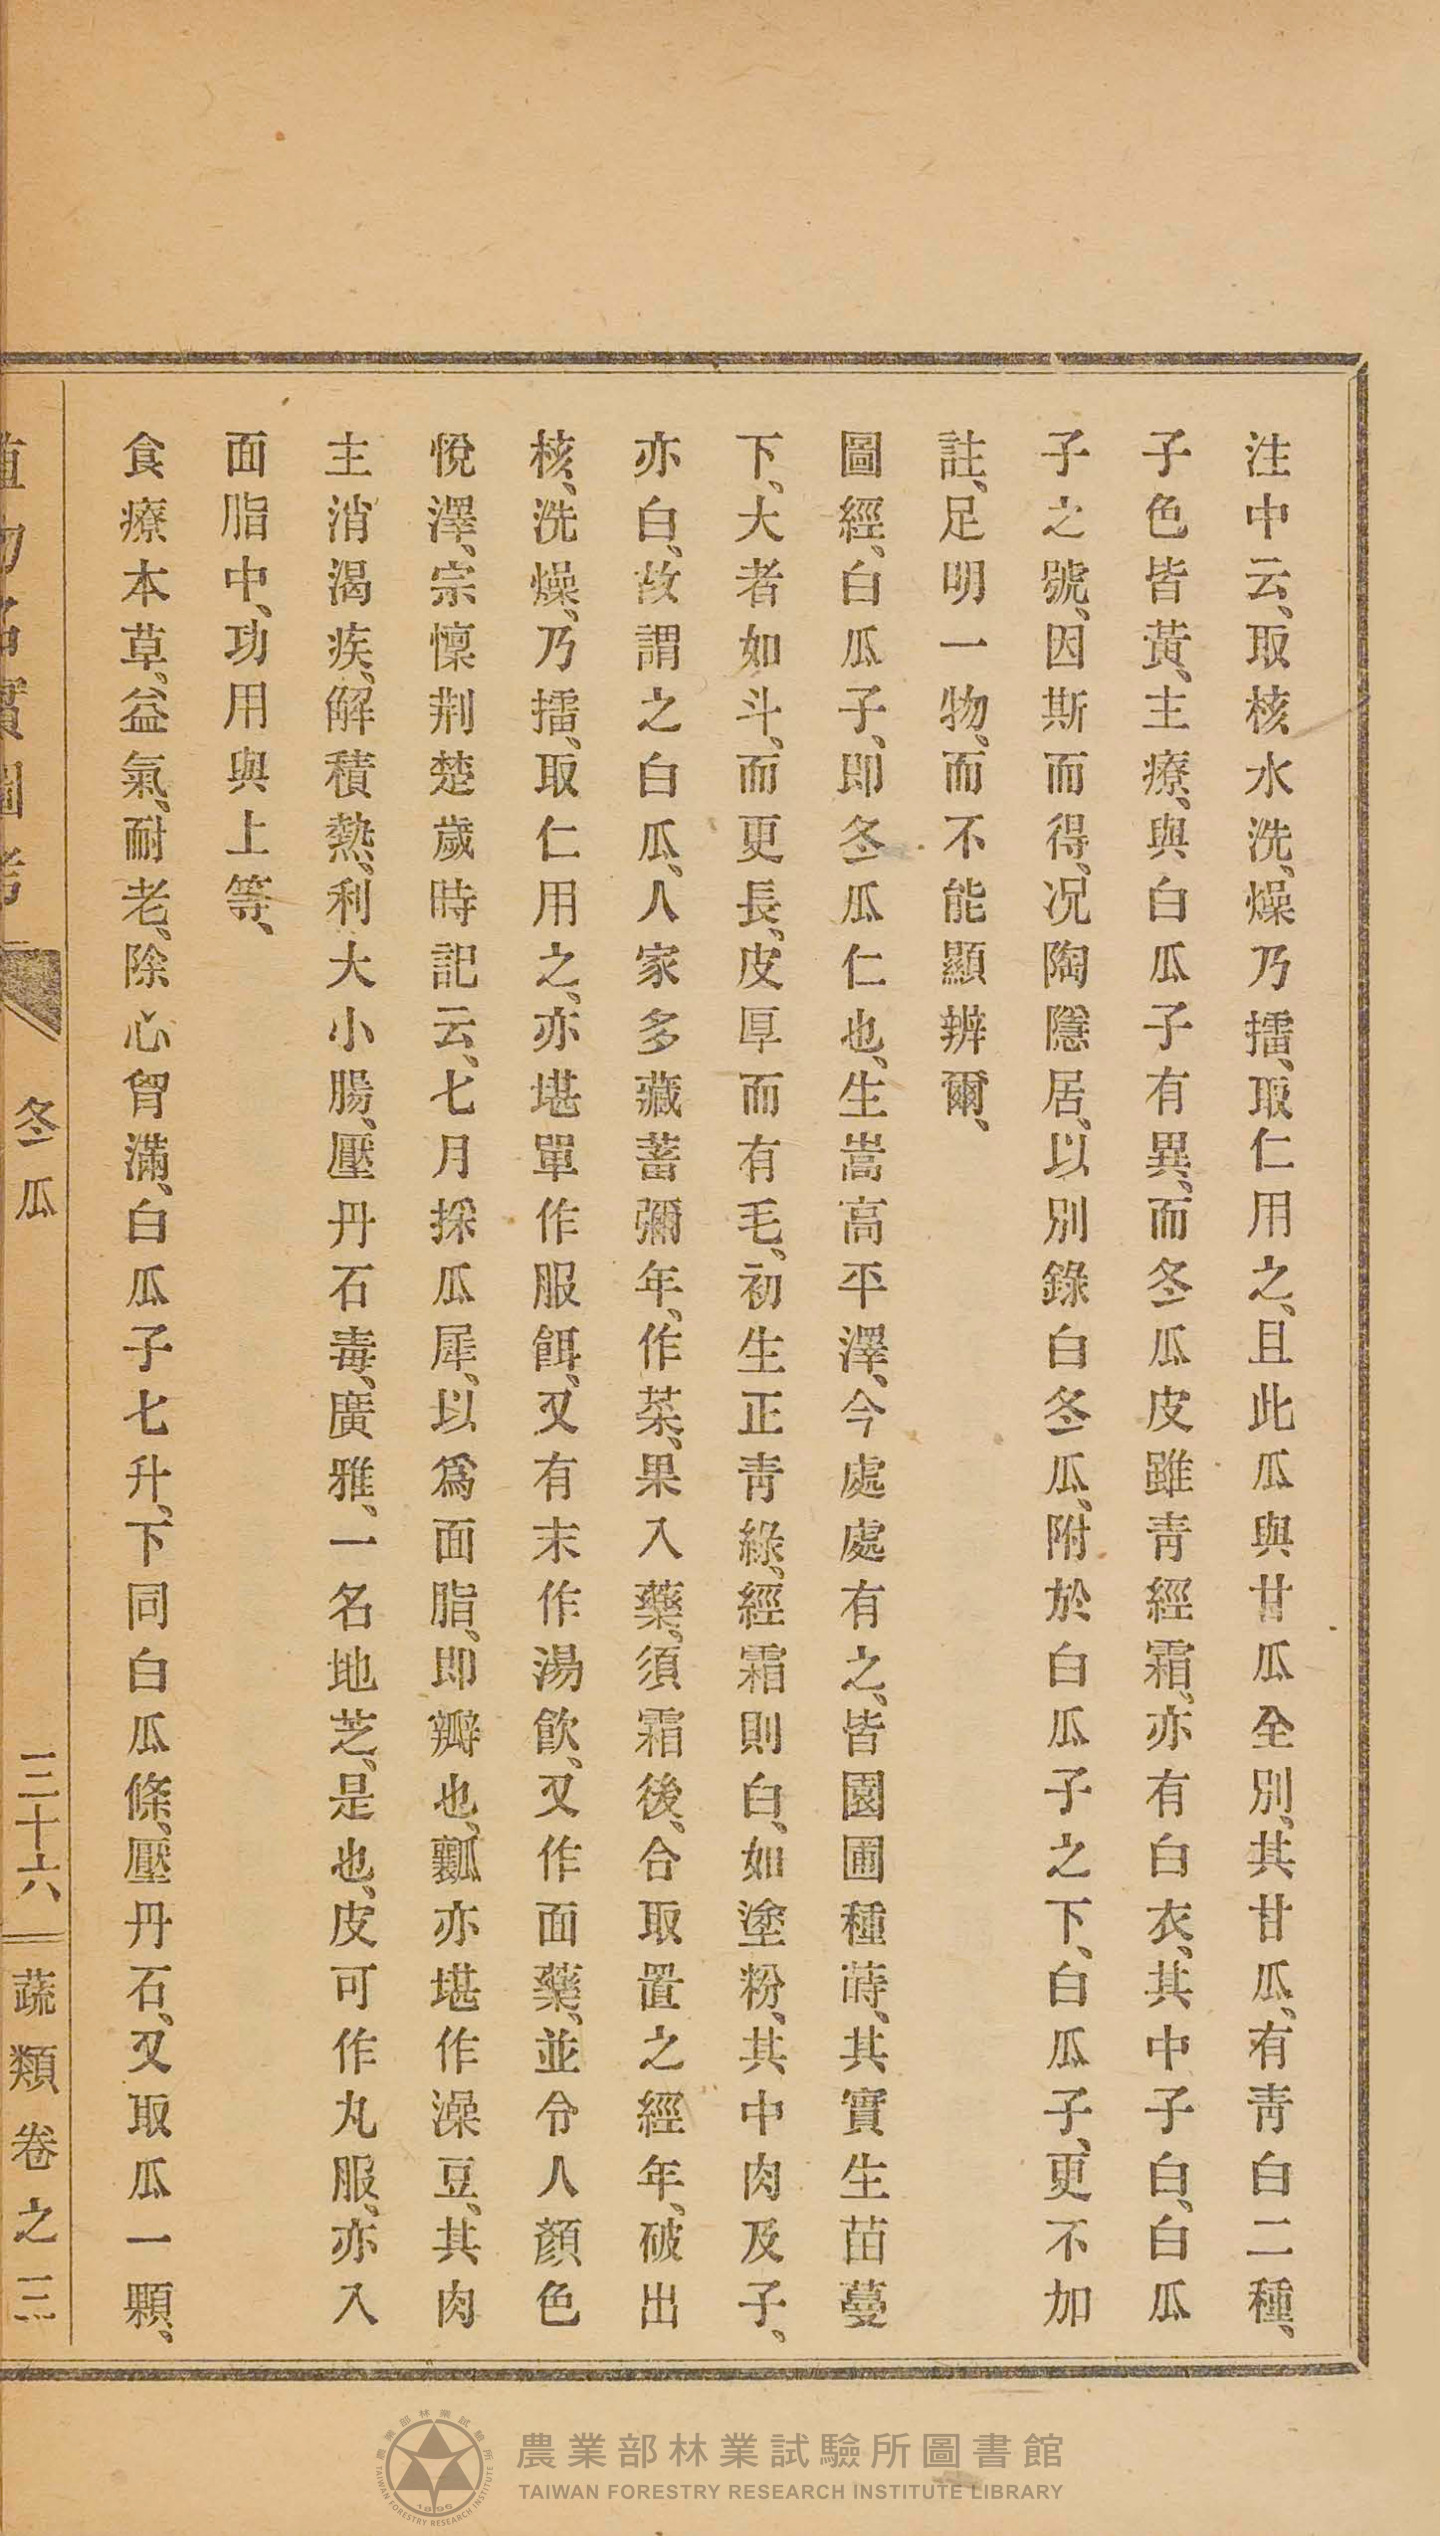 注中云、取核水洗、燥乃擂、取仁用之、且此瓜與甘瓜全別、其甘瓜、有青白二種、
子色皆黃、主療、與白瓜子有異、而冬瓜皮雖青經霜、亦有白衣、其中子白、白瓜
子之號、因斯而得、況陶隱居、以別錄白冬瓜、附於白瓜子之下、白瓜子、更不加
註、足明一物、而不能顯辨爾、
圖經、白瓜子、即冬瓜仁也、生嵩高平澤、今處處有之、皆園圃種蒔、其實生苗蔓
下、大者如斗、而更長、皮厚而有毛、初生正青綠、經霜則白、如塗粉、其中肉及子、
亦白、故謂之白瓜、人家多藏蓄彌年、作菜、果入藥、須霜後、合取置之經年、破出
核、洗燥、乃擂、取仁用之、亦堪單作服餌、又有末作湯飲、又作面藥、並令人顏色
悅澤、宗懍荆楚歲時記云、七月採瓜犀、以爲面脂、即瓣也、瓤亦堪作澡豆、其肉
主消渴疾、解積熱、利大小腸、壓丹石毒、廣雅、一名地芝、是也、皮可作丸服、亦入
面脂中、功用與上等、
食療本草、益氣、耐老、除心胷滿、白瓜子七升、下同白瓜條、壓丹石、又取瓜一顆、
植物名實圖考
冬瓜
三十六
蔬類卷之三
農業部林業試驗所圖書館
TAIWAN FORESTRY RESEARCH INSTITUTE LIBRARY
農業部林業試驗所
1895
TAIWAN FORESTRY RESEARCH INSTITUTE